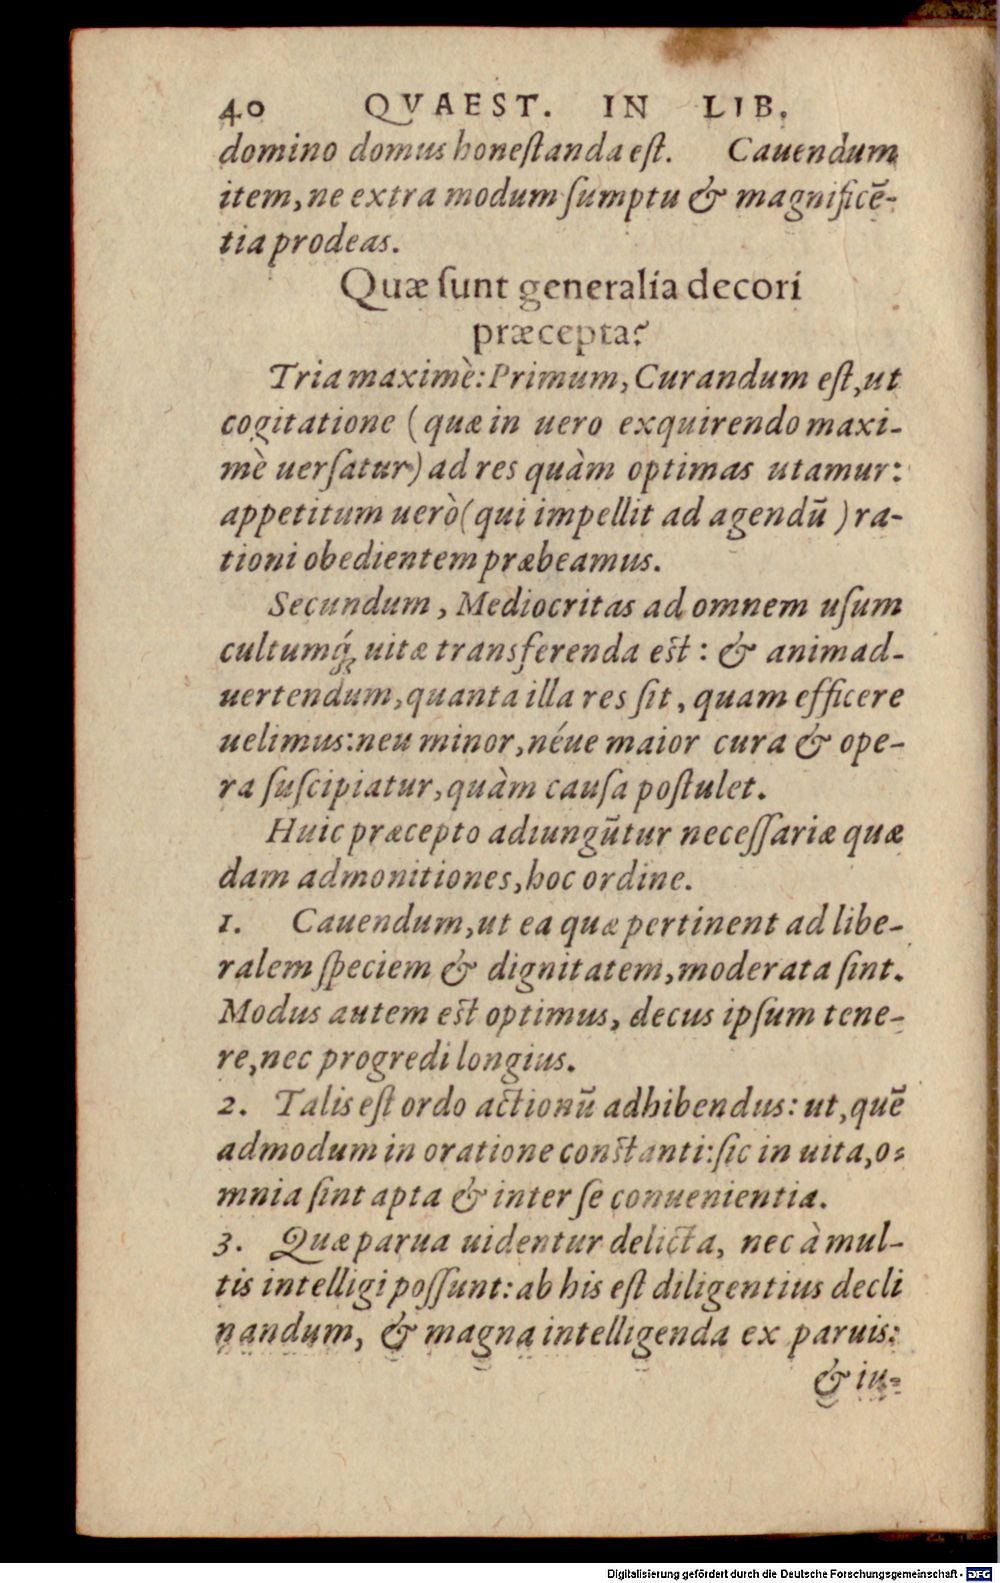 40 QVAEST. IN LIB.
domino domus honeſtanda eſt. Cauendum
item, ne extra modum ſumptu & magnificē-
tia prodeas.
Quæ ſunt generalia decori
præcepta?
Tria maximè: Primum, Curandum eſt, ut
cogitatione (quæ in uero exquirendo maxi-
mè uerſatur) ad res quàm optimas utamur:
appetitum uerò (qui impellit ad agendū) ra-
tioni obedientem præbeamus.
Secundum, Mediocritas ad omnem uſum
cultumq́; uitæ transferenda eſt: & animad-
uertendum, quanta illa res ſit, quam efficere
uelimus: neu minor, néue maior cura & ope-
ra ſuſcipiatur, quàm cauſa poſtulet.
Huic præcepto adiungūtur neceſſariæ quæ
dam admonitiones, hoc ordine.
1. Cauendum, ut ea quæ pertinent ad libe-
ralem ſpeciem & dignitatem, moderata ſint.
Modus autem eſt optimus, decus ipſum tene-
re, nec progredi longius.
2. Talis eſt ordo actionū adhibendus: ut, quē
admodum in oratione conſtanti: ſic in uita, o-
mnia ſint apta & inter ſe conuenientia.
3. Quæ parua uidentur delicta, nec à mul-
tis intelligi poſſunt: ab his eſt diligentius decli
nandum, & magna intelligenda ex paruis:
& iu-
Digitalisierung gefördert durch die Deutsche Forschungsgemeinschaft - DFG